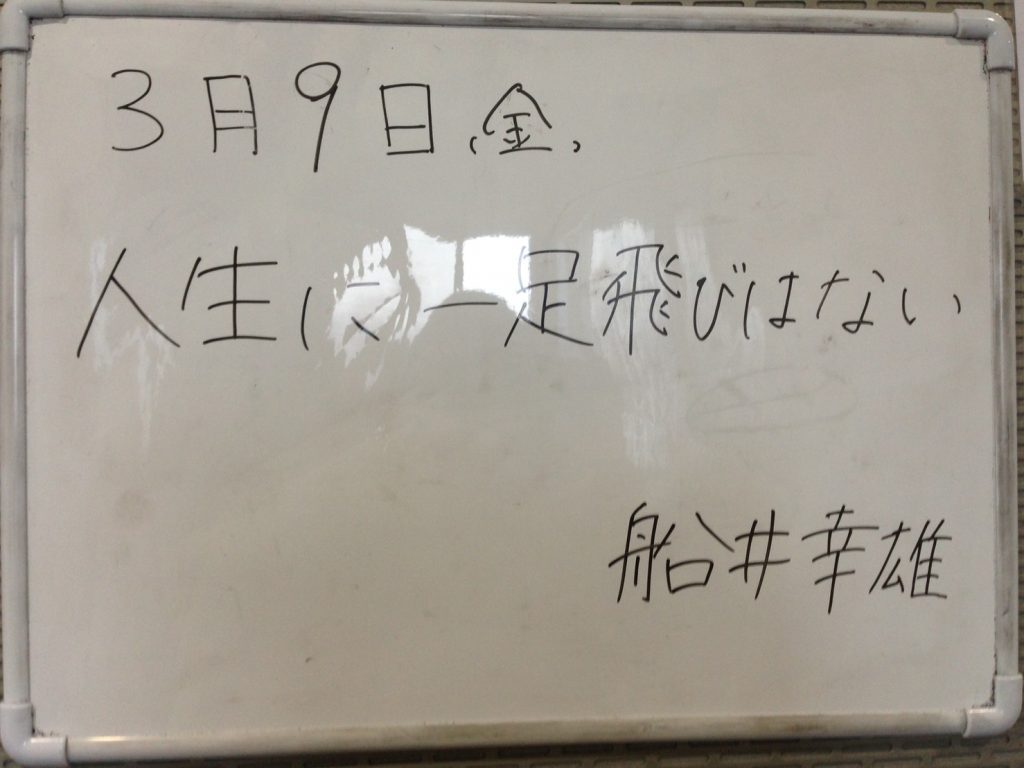 3月9日(金)
人生に一足飛びはない
船井幸雄